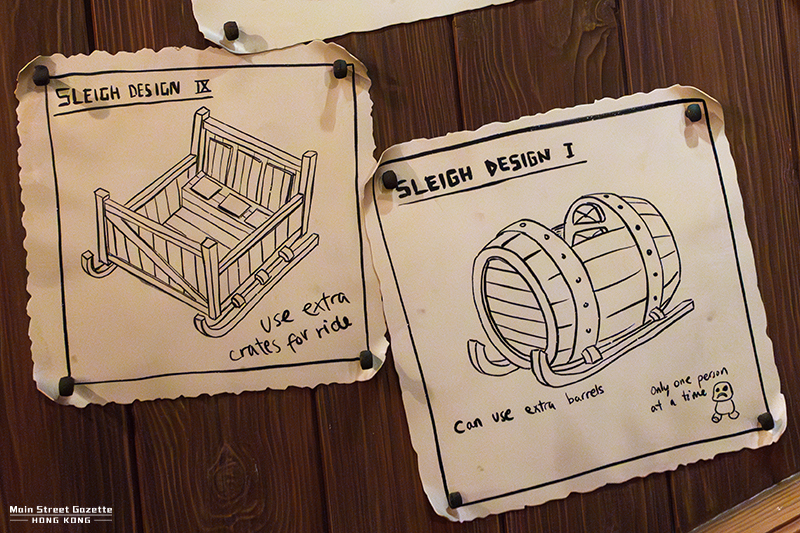 SLEIGH DESIGN IX
use extra
crates for ride
SLEIGH DESIGN I
Can use extra barrels
Only one person
at a time
Main Street Gazette
HONG KONG